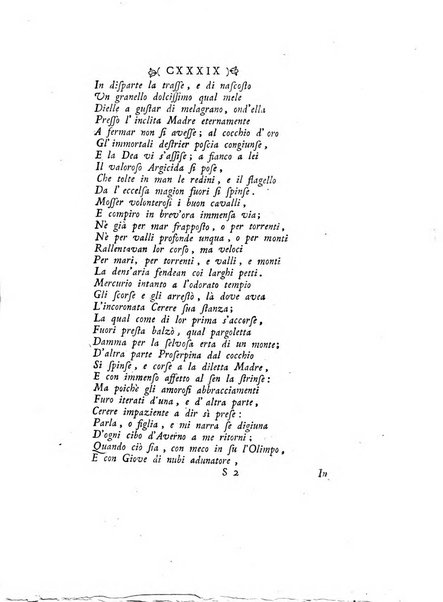 ( CXXXIX )
In disparte la trasse, e di nascosto
Un granello dolcissimo qual mele
Dielle a gustar di melagrano, ond'ella
Presso l'inclita Madre eternamente
A fermar non si avesse; al cocchio d'oro
Gl'immortali destrier poscia congiunse,
E la Dea vi s'assise; a fianco a lei
Il valoroso Argicida si pose,
Che tolte in man le redini, e il flagello
Da l'eccelsa magion fuori si spinse.
Mosser volonterosi i buon cavalli,
E compiro in brev'ora immensa via;
Nè già per mar frapposto, o per torrenti,
Nè per valli profonde unqua, o per monti
Rallentavan lor corso, ma veloci
Per mari, per torrenti, e valli, e monti
La dens'aria fendean coi larghi petti.
Mercurio intanto a l'odorato tempio
Gli scorse e gli arrestò, là dove avea
L'incoronata Cerere sua stanza;
La qual come di lor prima s'accorse,
Fuori presta balzò, qual pargoletta
Damma per la selvosa erta di un monte;
D'altra parte Proserpina dal cocchio
Si spinse, e corse a la diletta Madre,
E con immenso affetto al sen la strinse:
Ma poichè gli amorosi abbracciamenti
Furo iterati d'una, e d'altra parte,
Cerere impaziente a dir sì prese:
Parla, o figlia, e mi narra se digiuna
D'ogni cibo d'Averno a me ritorni;
Quando ciò sia, con meco in su l'Olimpo,
E con Giove di nubi adunatore,
S 2 In